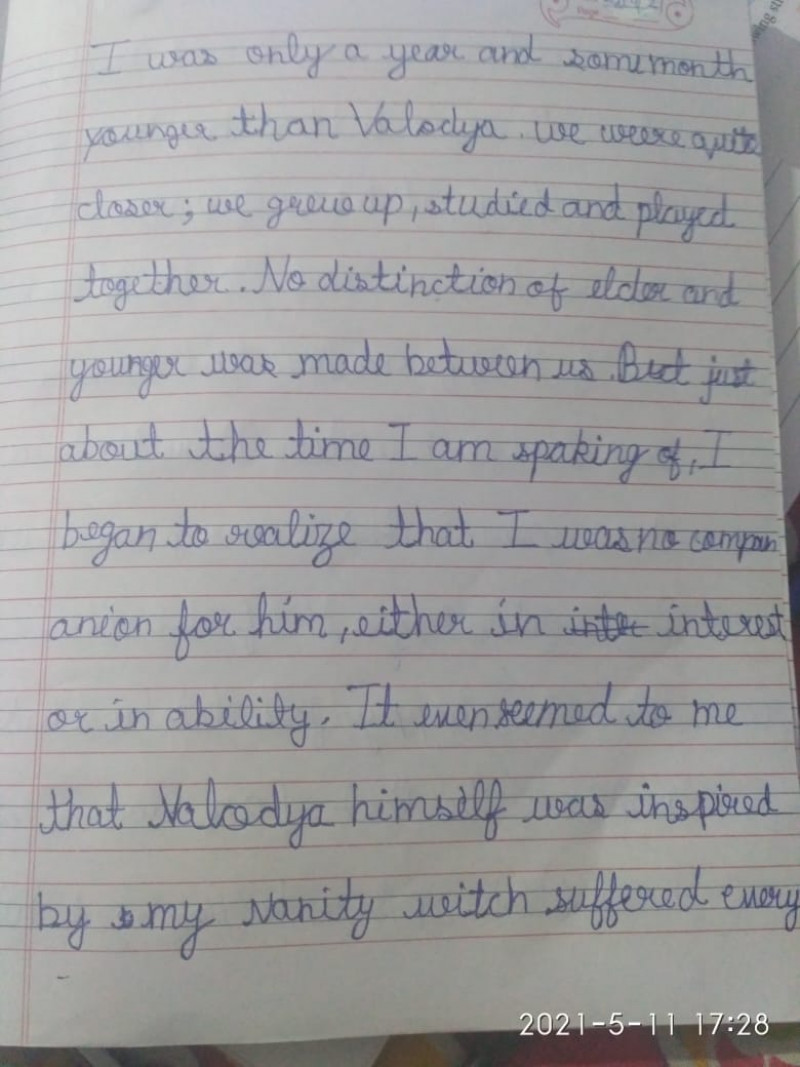 I was only a year and some month
younger than Valodya. we weere quite
closer; we grew up, studied and played
together. No distinction of elder and
younger was made between us. But just
about the time I am spaking of, I
began to realize that I was no compan
anion for him, either in inter interest
or in ability. It even seemed to me
that Valodya himself was inspired
by my vanity witch suffered every
2021-5-11 17:28